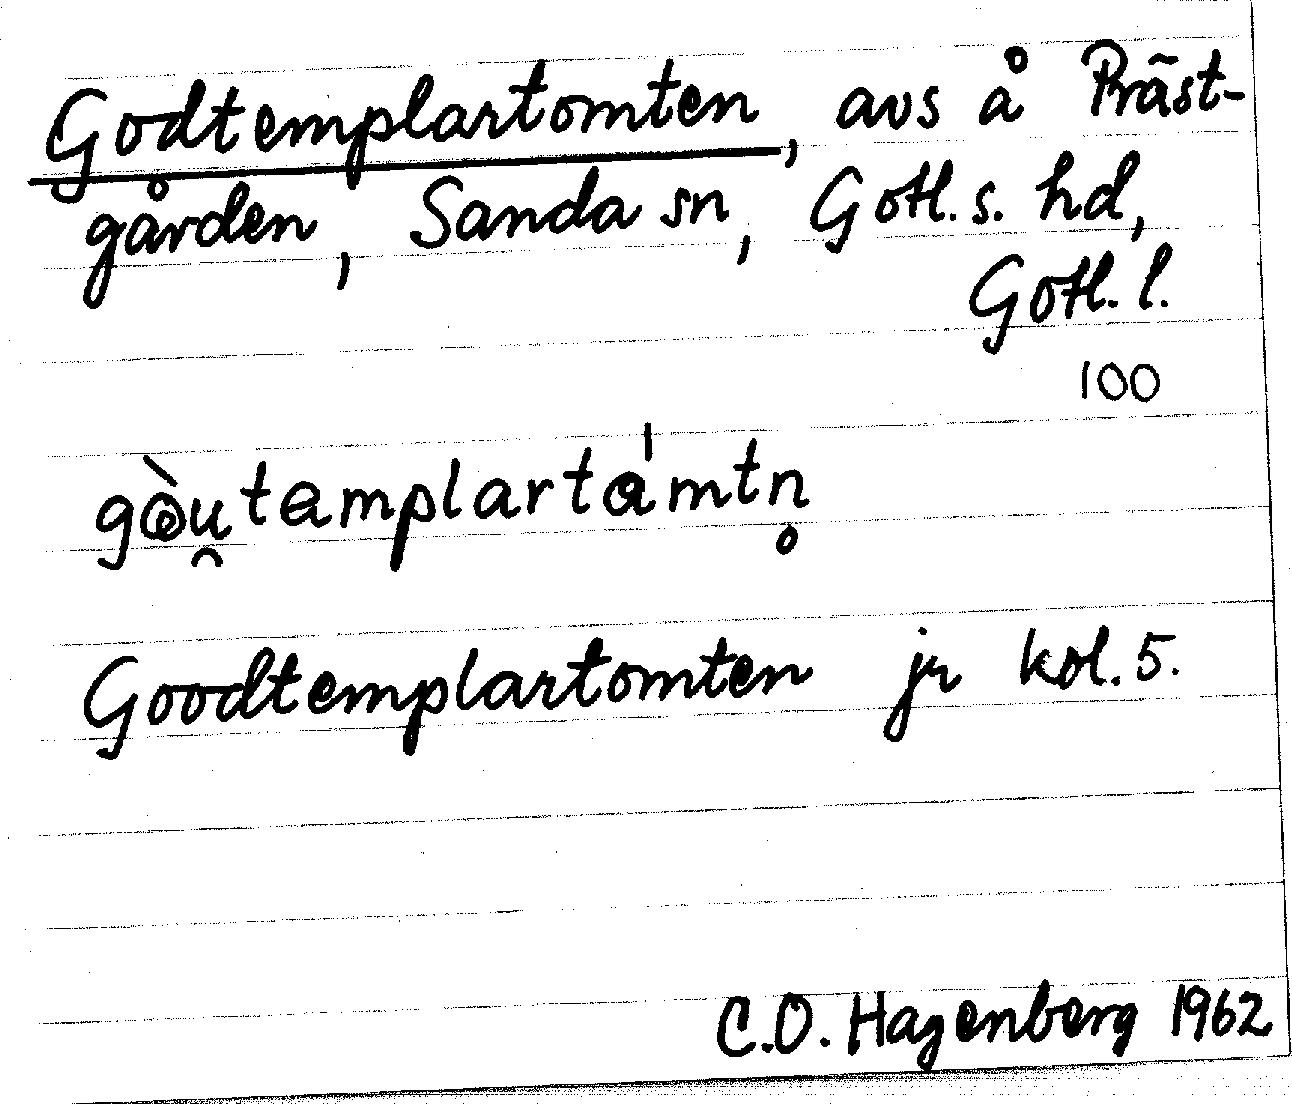 Godtemplartomten, avs å Präst-
gården, Sanda sn, Gotl. s. hd,
Gotl. l.
100
Goodtemplartomten jr kol. 5.
C.O. Hagenberg 1962